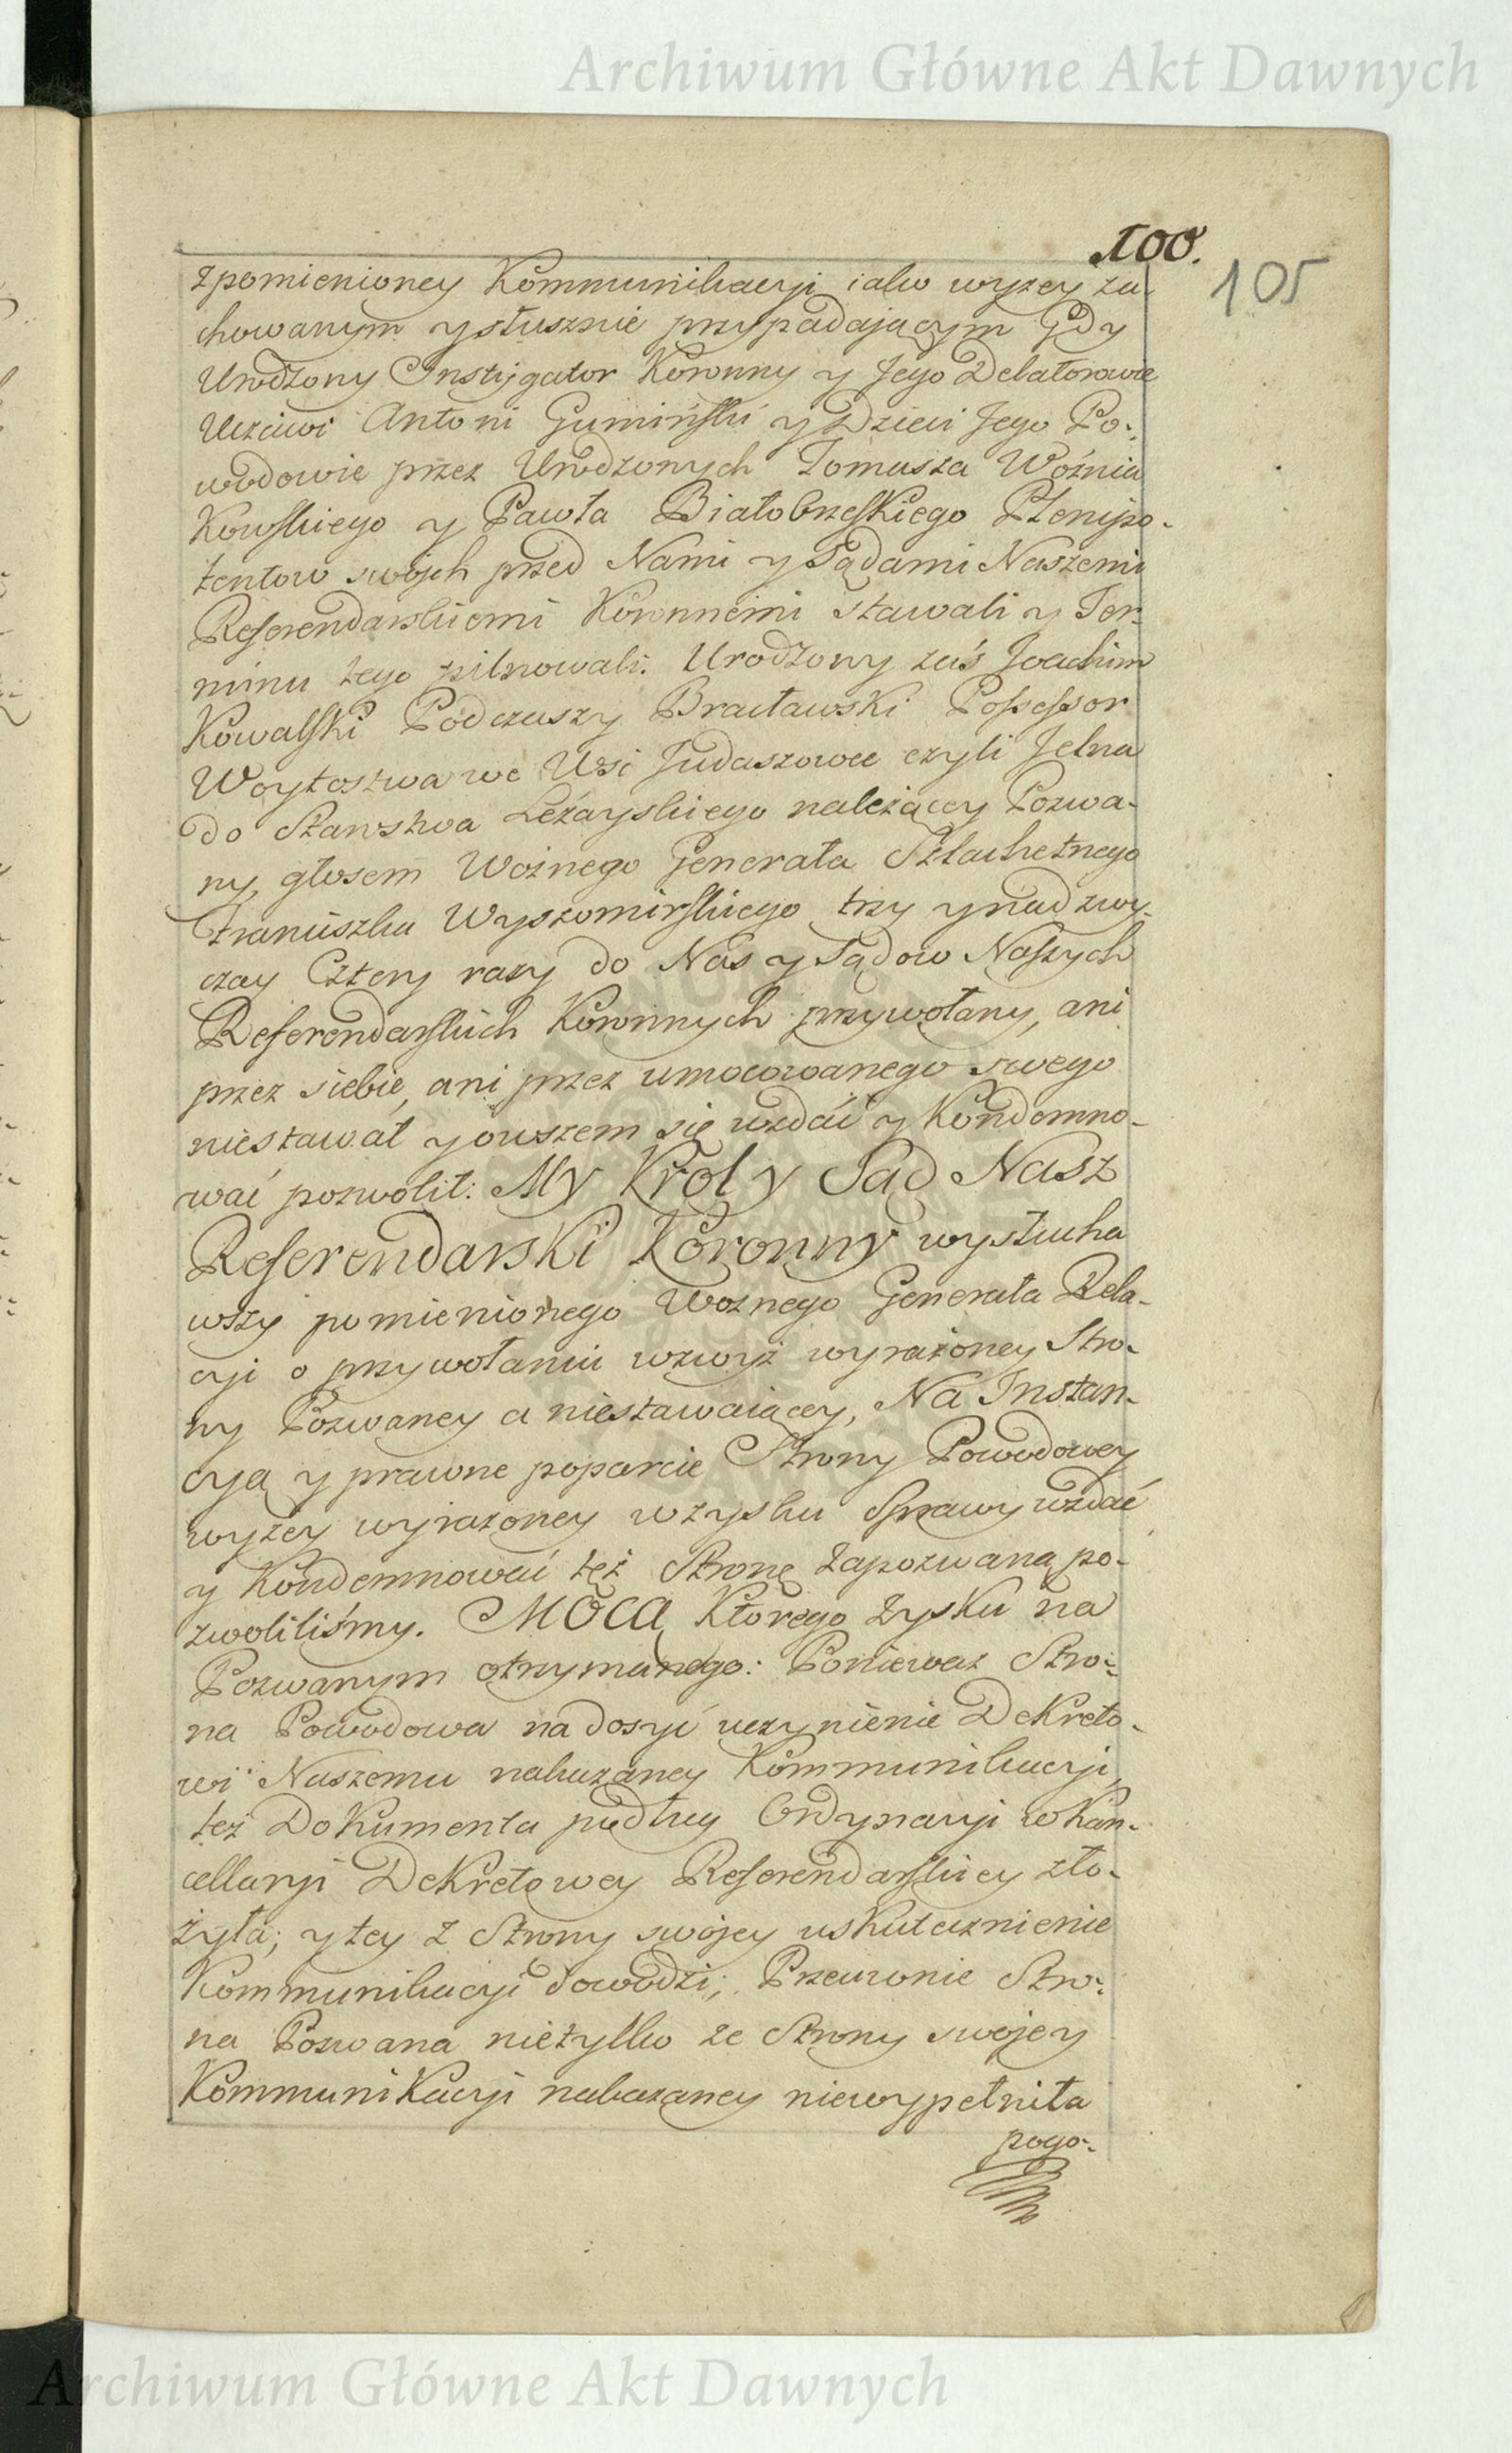 Archiwum Główne Akt Dawnych
100.
105
zpomienioney Kommunikacyi iako wyzey za
chowanym ysłusznie przypadaiącym Gdy
Urodzony Instygator Koronny y Jego Delatorowie
Uczciwi Antoni Gumiński y Dzieci Jego Po-
wodowie przez Urodzonych Tomasza Woźnia
Kowskiego y Pawła Białobrzeskiego Plenipo-
tentow swoich przed Nami y Sądami Naszemi
Referendarskiemi Koronnemi stawali y Ter-
minu tego pilnowali. Urodzony zaś Joachim
Kowalski Podczaszy Bracławski Possessor
Woytostwa we Wsi Judaszowce czyli Jelna
do Starostwa Leżayskiego należącey Pozwa-
ny, głosem Woźnego Generała Szlachetnego
Franciszka Wyszomirskiego trzy ynad zwy-
czay Cztery razy do Nas y Sądow Naszych
Referendarskich Koronnych przywołany, ani
przez siebie, ani przez umocowanego swego
niestawał yowszem się wzdać y Kondemno-
wać pozwolił: My Krol y Sąd Nasz
Referendarski Koronny wysłucha
wszy pomienionego Woznego Generała Rela-
cyi o przywołaniu wzwyż wyrażoney Stro-
ny Pozwaney a niestawaiącey, Na Instan-
cyą y prawne poparcie Strony Powodowey
wyzey wyrazoney wzysku Sprawy wzdać
y Kondemnować też Stronę Zapozwaną po-
zwoliliśmy. Mocą Ktorego Zysku na
Pozwanym otrzymanego: Ponieważ Stro-
na Powodowa na dosyć uczynienie Dekreto-
wi Naszemu nakazaney Kommunikacyi,
też Dokumenta podług Ordynacyi w Kan-
cellaryi Dekretowey Referendarskiey zło-
żyła; y tey z Strony swojey uskutecznienie
Kommunikacyi dowodzi; Przeciwnie Stro-
na Pozwana nietylko ze Strony swojey
Kommunikacyi nakazaney niewypełniła
pogo-
Archiwum Główne Akt Dawnych